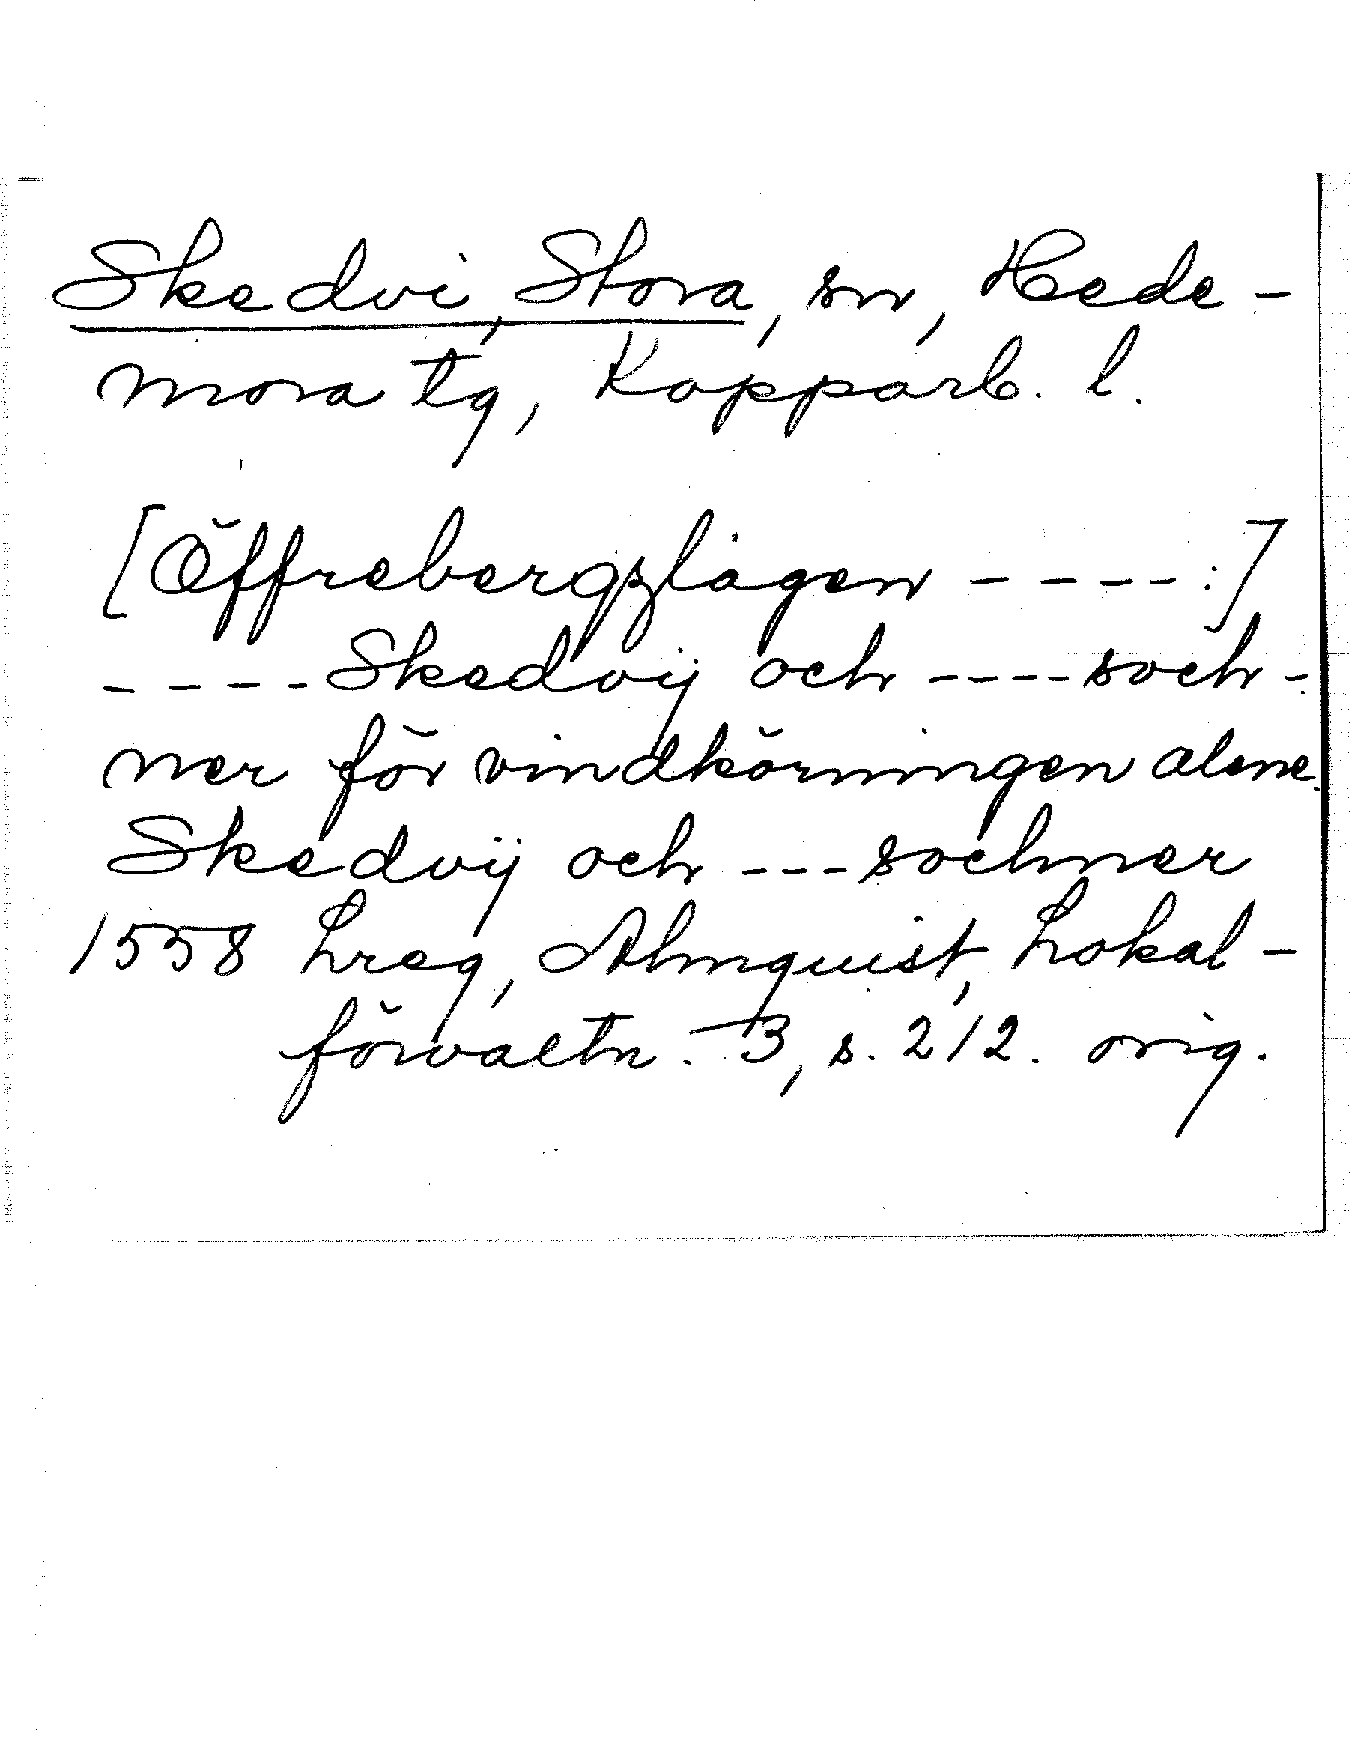 Skedvi, Stora, sn, Hede-
mora tg, Kopparb. l.
[Öffrebergzlagen ----:]
---- Skedvij och ---- soch-
ner för vindkörningen alene
Skedvij och --- sochner
1558 Lreg, Almquist, Lokal-
förvaltn. 3, s. 212. orig.